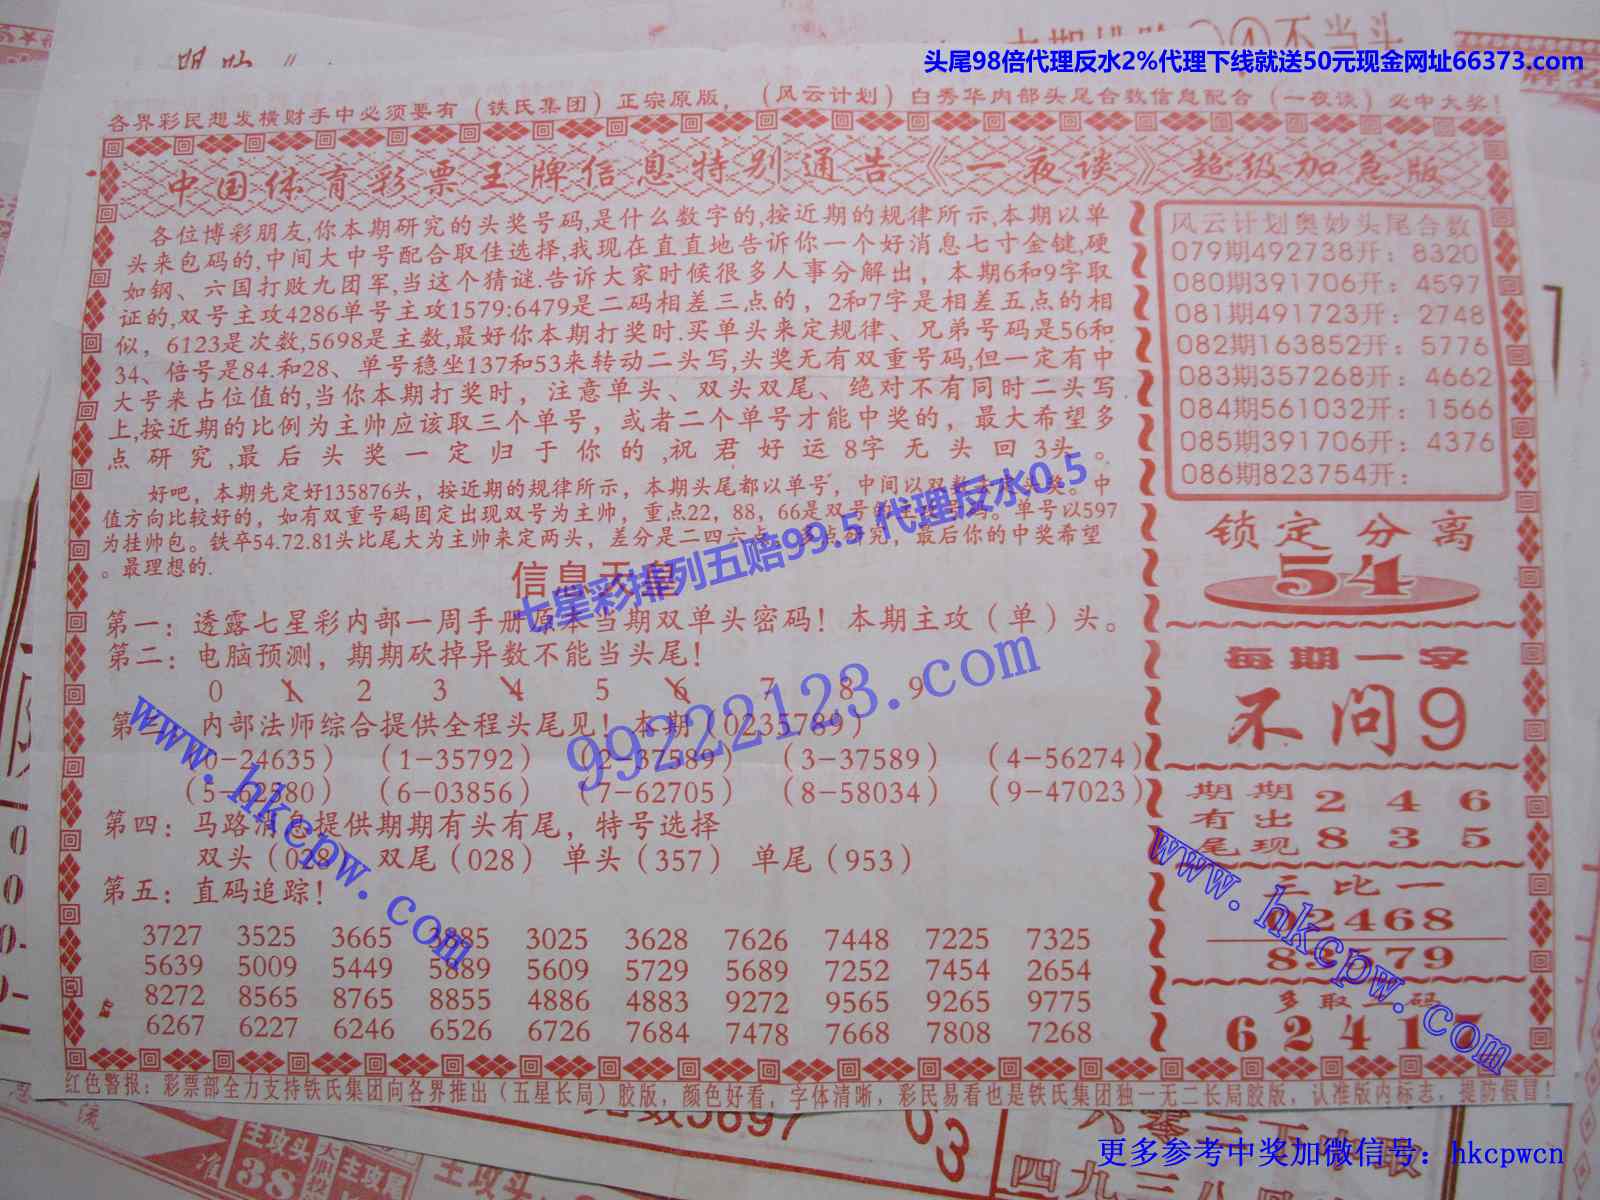 头尾98倍代理反水2%代理下线就送50元现金网址66373.com
各界彩民想发横财手中必须要有（铁氏集团）正宗原版，（风云计划）白秀华内部头尾合数信息配合（一夜谈）必中大奖！
中国体育彩票王牌信息特别通告《一夜谈》超级加急版
各位博彩朋友,你本期研究的头奖号码,是什么数字的,按近期的规律所示,本期以单
头来包码的,中间大中号配合取佳选择,我现在直直地告诉你一个好消息七寸金键,硬
如钢、六国打败九团军,当这个猜谜.告诉大家时候很多人事分解出，本期6和9字取
证的,双号主攻4286单号主攻1579:6479是二码相差三点的，2和7字是相差五点的相
似，6123是次数,5698是主数,最好你本期打奖时.买单头来定规律、兄弟号码是56和
34、倍号是84.和28、单号稳坐137和53来转动二头写,头奖无有双重号码,但一定有中
大号来占位值的,当你本期打奖时，注意单头、双头双尾、绝对不有同时二头写
上,按近期的比例为主帅应该取三个单号，或者二个单号才能中奖的，最大希望多
点研究,最后头奖一定归于你的,祝君好运8字无头回3头。
好吧，本期先定好135876头，按近期的规律所示，本期头尾都以单号，中间以双数
头奖。中
值方向比较好的，如有双重号码固定出现双号为主帅，重点22，88，66是双号的
。单号以597
为挂帅包。铁卒54.72.81头比尾大为主帅来定两头，差分是二四六点，多点研究，最后你的中奖希望
。最理想的.
七星彩排列五赔99.5 代理反水0.5
信息天皇
第一：透露七星彩内部一周手册原本当期双单头密码！本期主攻（单）头。
第二：电脑预测，期期砍掉异数不能当头尾！
0 1 2 3 4 5 6 7 8 9
第三：内部法师综合提供全程头尾见！本期（0235789）
(0-24635) (1-35792) (2-37589) (3-37589) (4-56274)
(5-62380) (6-03856) (7-62705) (8-58034) (9-47023)
第四：马路消息提供期期有头有尾，特号选择
双头（028） 双尾（028） 单头（357） 单尾（953）
第五：直码追踪！
3727 3525 3665 3885 3025 3628 7626 7448 7225 7325
5639 5009 5449 5889 5609 5729 5689 7252 7454 2654
8272 8565 8765 8855 4886 4883 9272 9565 9265 9775
6267 6227 6246 6526 6726 7684 7478 7668 7808 7268
风云计划奥妙头尾合数
079期492738开：8320
080期391706开：4597
081期491723开：2748
082期163852开：5776
083期357268开：4662
084期561032开：1566
085期391706开：4376
086期823754开：
锁定分离
54
每期一字
不问9
期期有出尾现
2 4 6
8 3 5
三比一
02468
83579
多取一码
62417
99222123.com
www.hkcpw.com
www.hkcpw.com
红色警报：彩票部全力支持铁氏集团向各界推出（五星长局）胶版，颜色好看，字体清晰，彩民易看也是铁氏集团独一无二长局胶版，认准版内标志，提防假冒！
主攻头
38
主攻尾
更多参考中奖加微信号：hkcpwcn